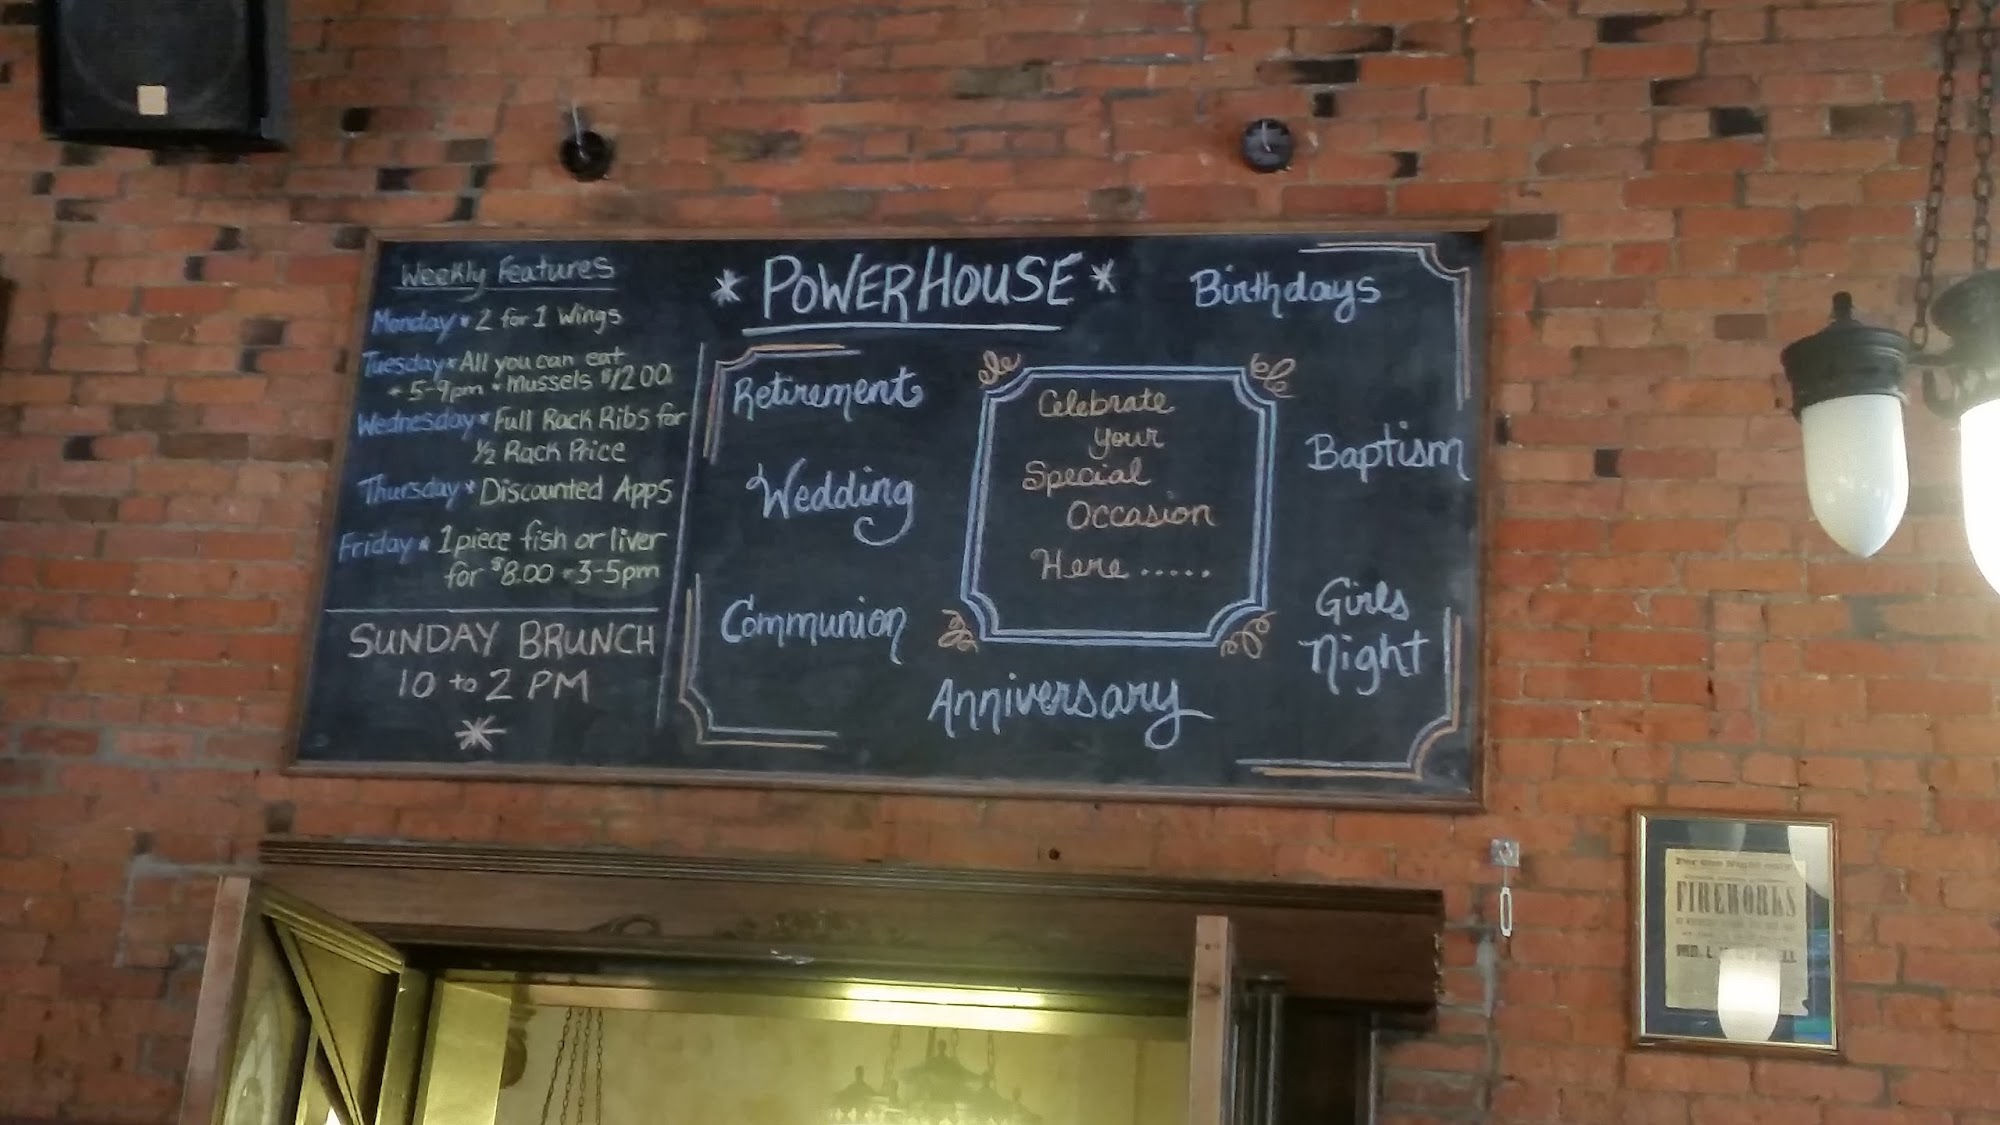 Weekly Features
Monday * 2 for 1 Wings
Tuesday * All you can eat
* 5-9pm * Mussels $12.00
Wednesday * Full Rack Ribs for
1/2 Rack Price
Thursday * Discounted Apps
Friday * 1 piece fish or liver
for $8.00 * 3-5pm
SUNDAY BRUNCH
10 to 2 PM
* POWERHOUSE *
Birthdays
Retirement
Wedding
Communion
Celebrate
your
Special
Occasion
Here .....
Baptism
Girls
Night
Anniversary
FIREWORKS